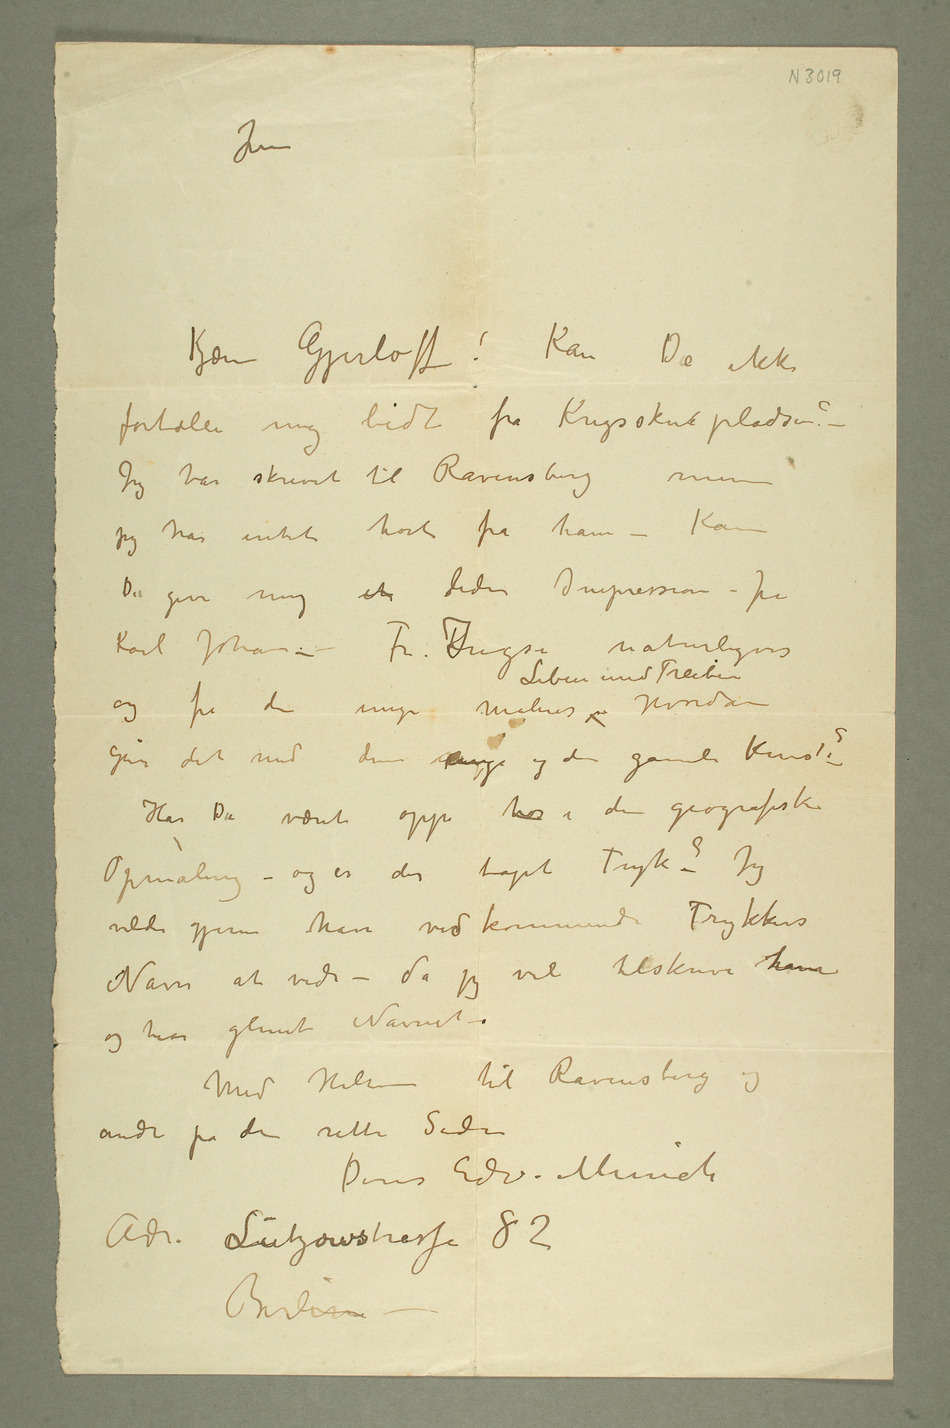 N 3019
Kjære Gjerløff! Kan De ikke
fortælle mig lidt fra Krigsskuepladsen? –
Jeg har skrevet til Ravensberg men
jeg har intet hørt fra ham – Kan
De give mig et liden Impression – fra
Karl Johan – Fr. Thrugse naturligvis
Leben und Treiben
og fra de unge maleres – Hvordan
går det med den unge og den gamle Kunst? –
Har De været oppe hos i den geografiske
Opmåling – og er der taget Tryk? – Jeg
vilde gjerne have vedkommende Trykkers
Navn at vide – da jeg vil tilskrive ham
og har glemt Navnet –
Med Hilsen til Ravensberg og
andre på den rette Side
Deres Edv. Munch
Adr. Lützowstrasse 82
Berlin –